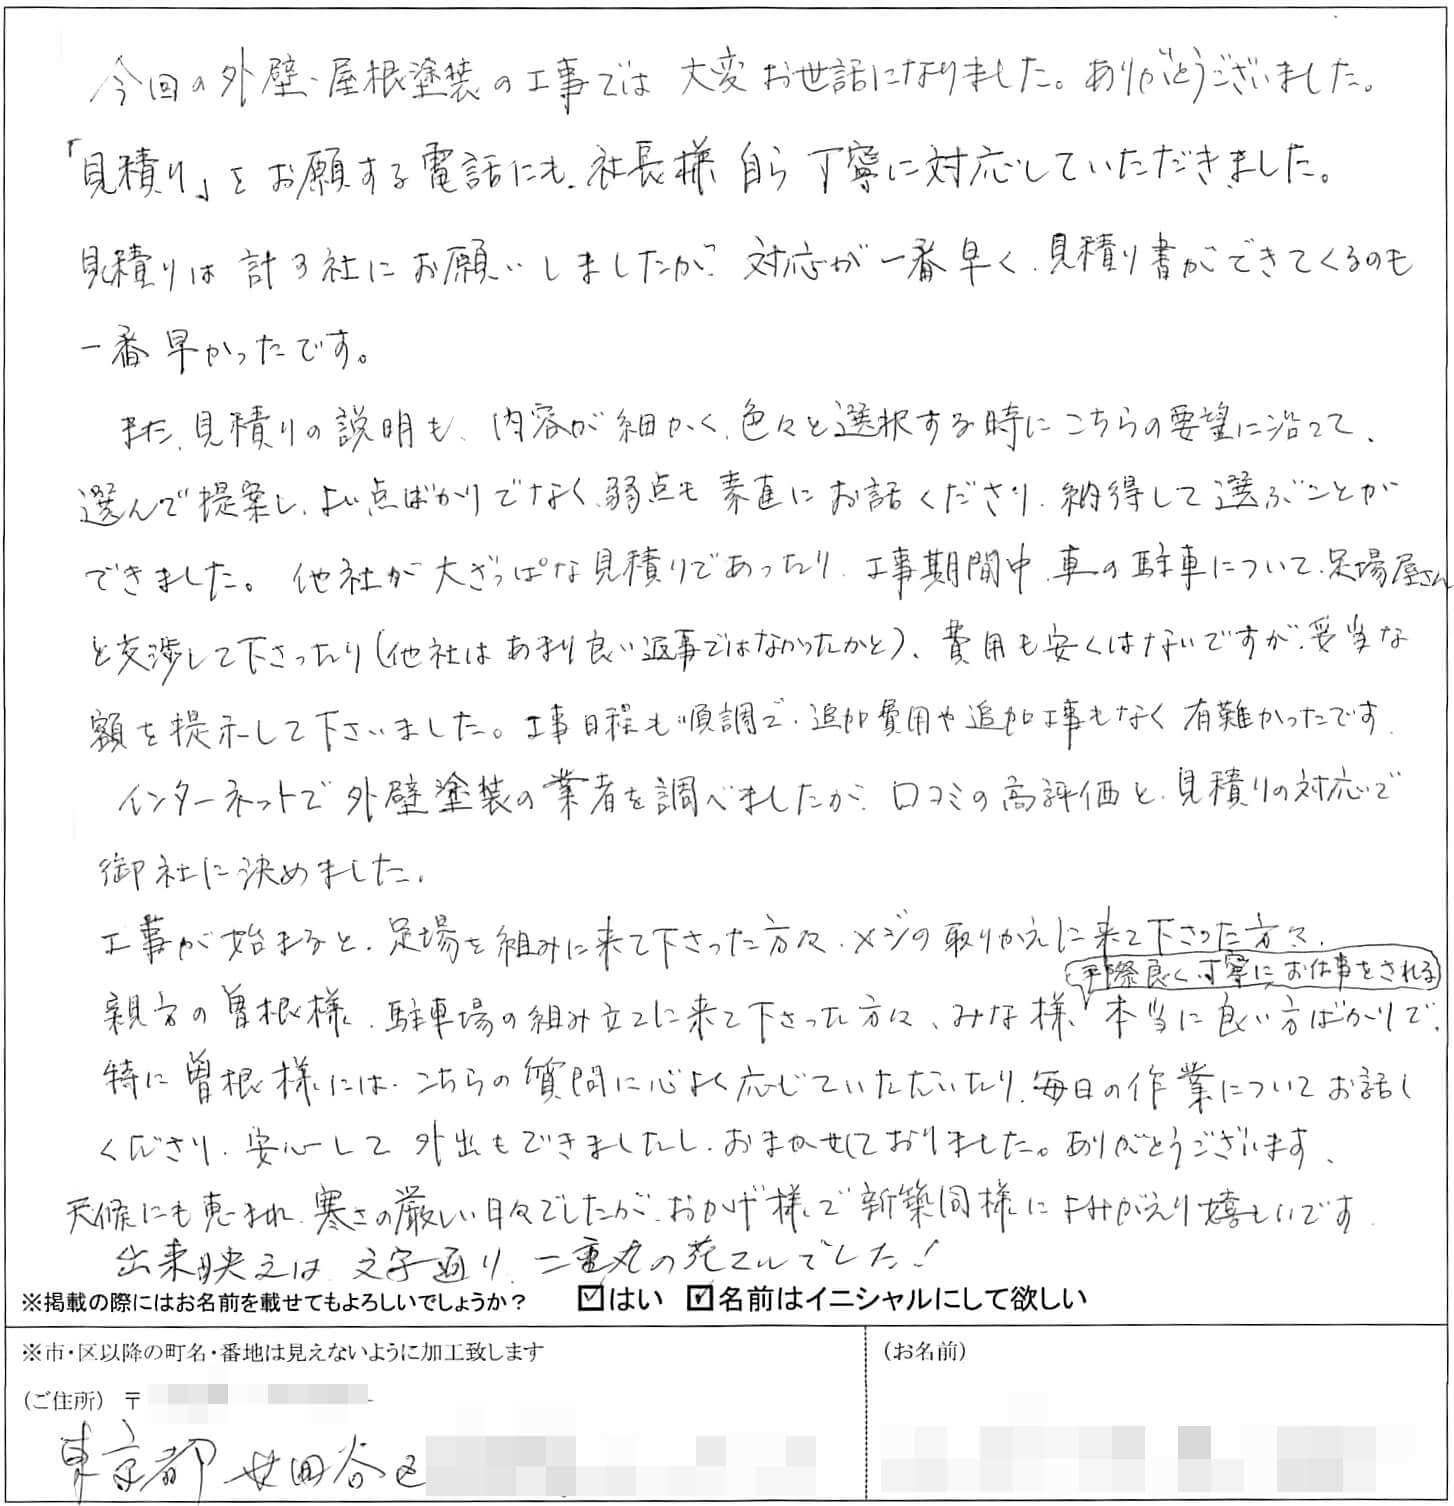 今回の外壁、屋根塗装の工事では 大変お世話になりました。ありがとうございました。
「見積り」をお願する電話にも、社長様自ら丁寧に対応していただきました。
見積りは 計3社にお願いしましたが、対応が一番早く、見積り書ができてくるのも
一番早かったです。
また、見積りの説明も、内容が細かく、色々と選択する時にこちらの要望に沿って、
選んで提案し、よい点ばかりでなく、弱点も素直にお話くださり、納得して選ぶことが
できました。他社が大ざっぱな見積りであったり、工事期間中、車の駐車について、足場屋さん
と交渉して下さったり(他社はあまり良い返事ではなかったかと)、費用も安くはないですが、妥当な
額を提示して下さいました。工事日程も順調で、追加費用や追加工事もなく有難かったです。
インターネットで外壁塗装の業者を調べましたが、口コミの高評価と、見積りの対応で
御社に決めました。
工事が始まると、足場を組みに来て下さった方々、メジの取りかえに来て下さった方々、
手際良く、丁寧に、お仕事をされる
親方の曽根様、駐車場の組み立てに来て下さった方々、みな様、本当に良い方ばかりで、
特に曽根様には、こちらの質問に心よく応じていただいたり、毎日の作業についてお話し
くださり、安心して外出もできましたし、おまかせしておりました。ありがとうございます。
天候にも恵まれ、寒さの厳しい日々でしたが、おかげ様で新築同様によみがえり嬉しいです。
出来映えは、文字通り、二重丸の花マルでした!
※掲載の際にはお名前を載せてもよろしいでしょうか? ☑はい ☑名前はイニシャルにして欲しい
※市・区以降の町名・番地は見えないように加工致します
(お名前)
(ご住所) 〒
東京都世田谷区